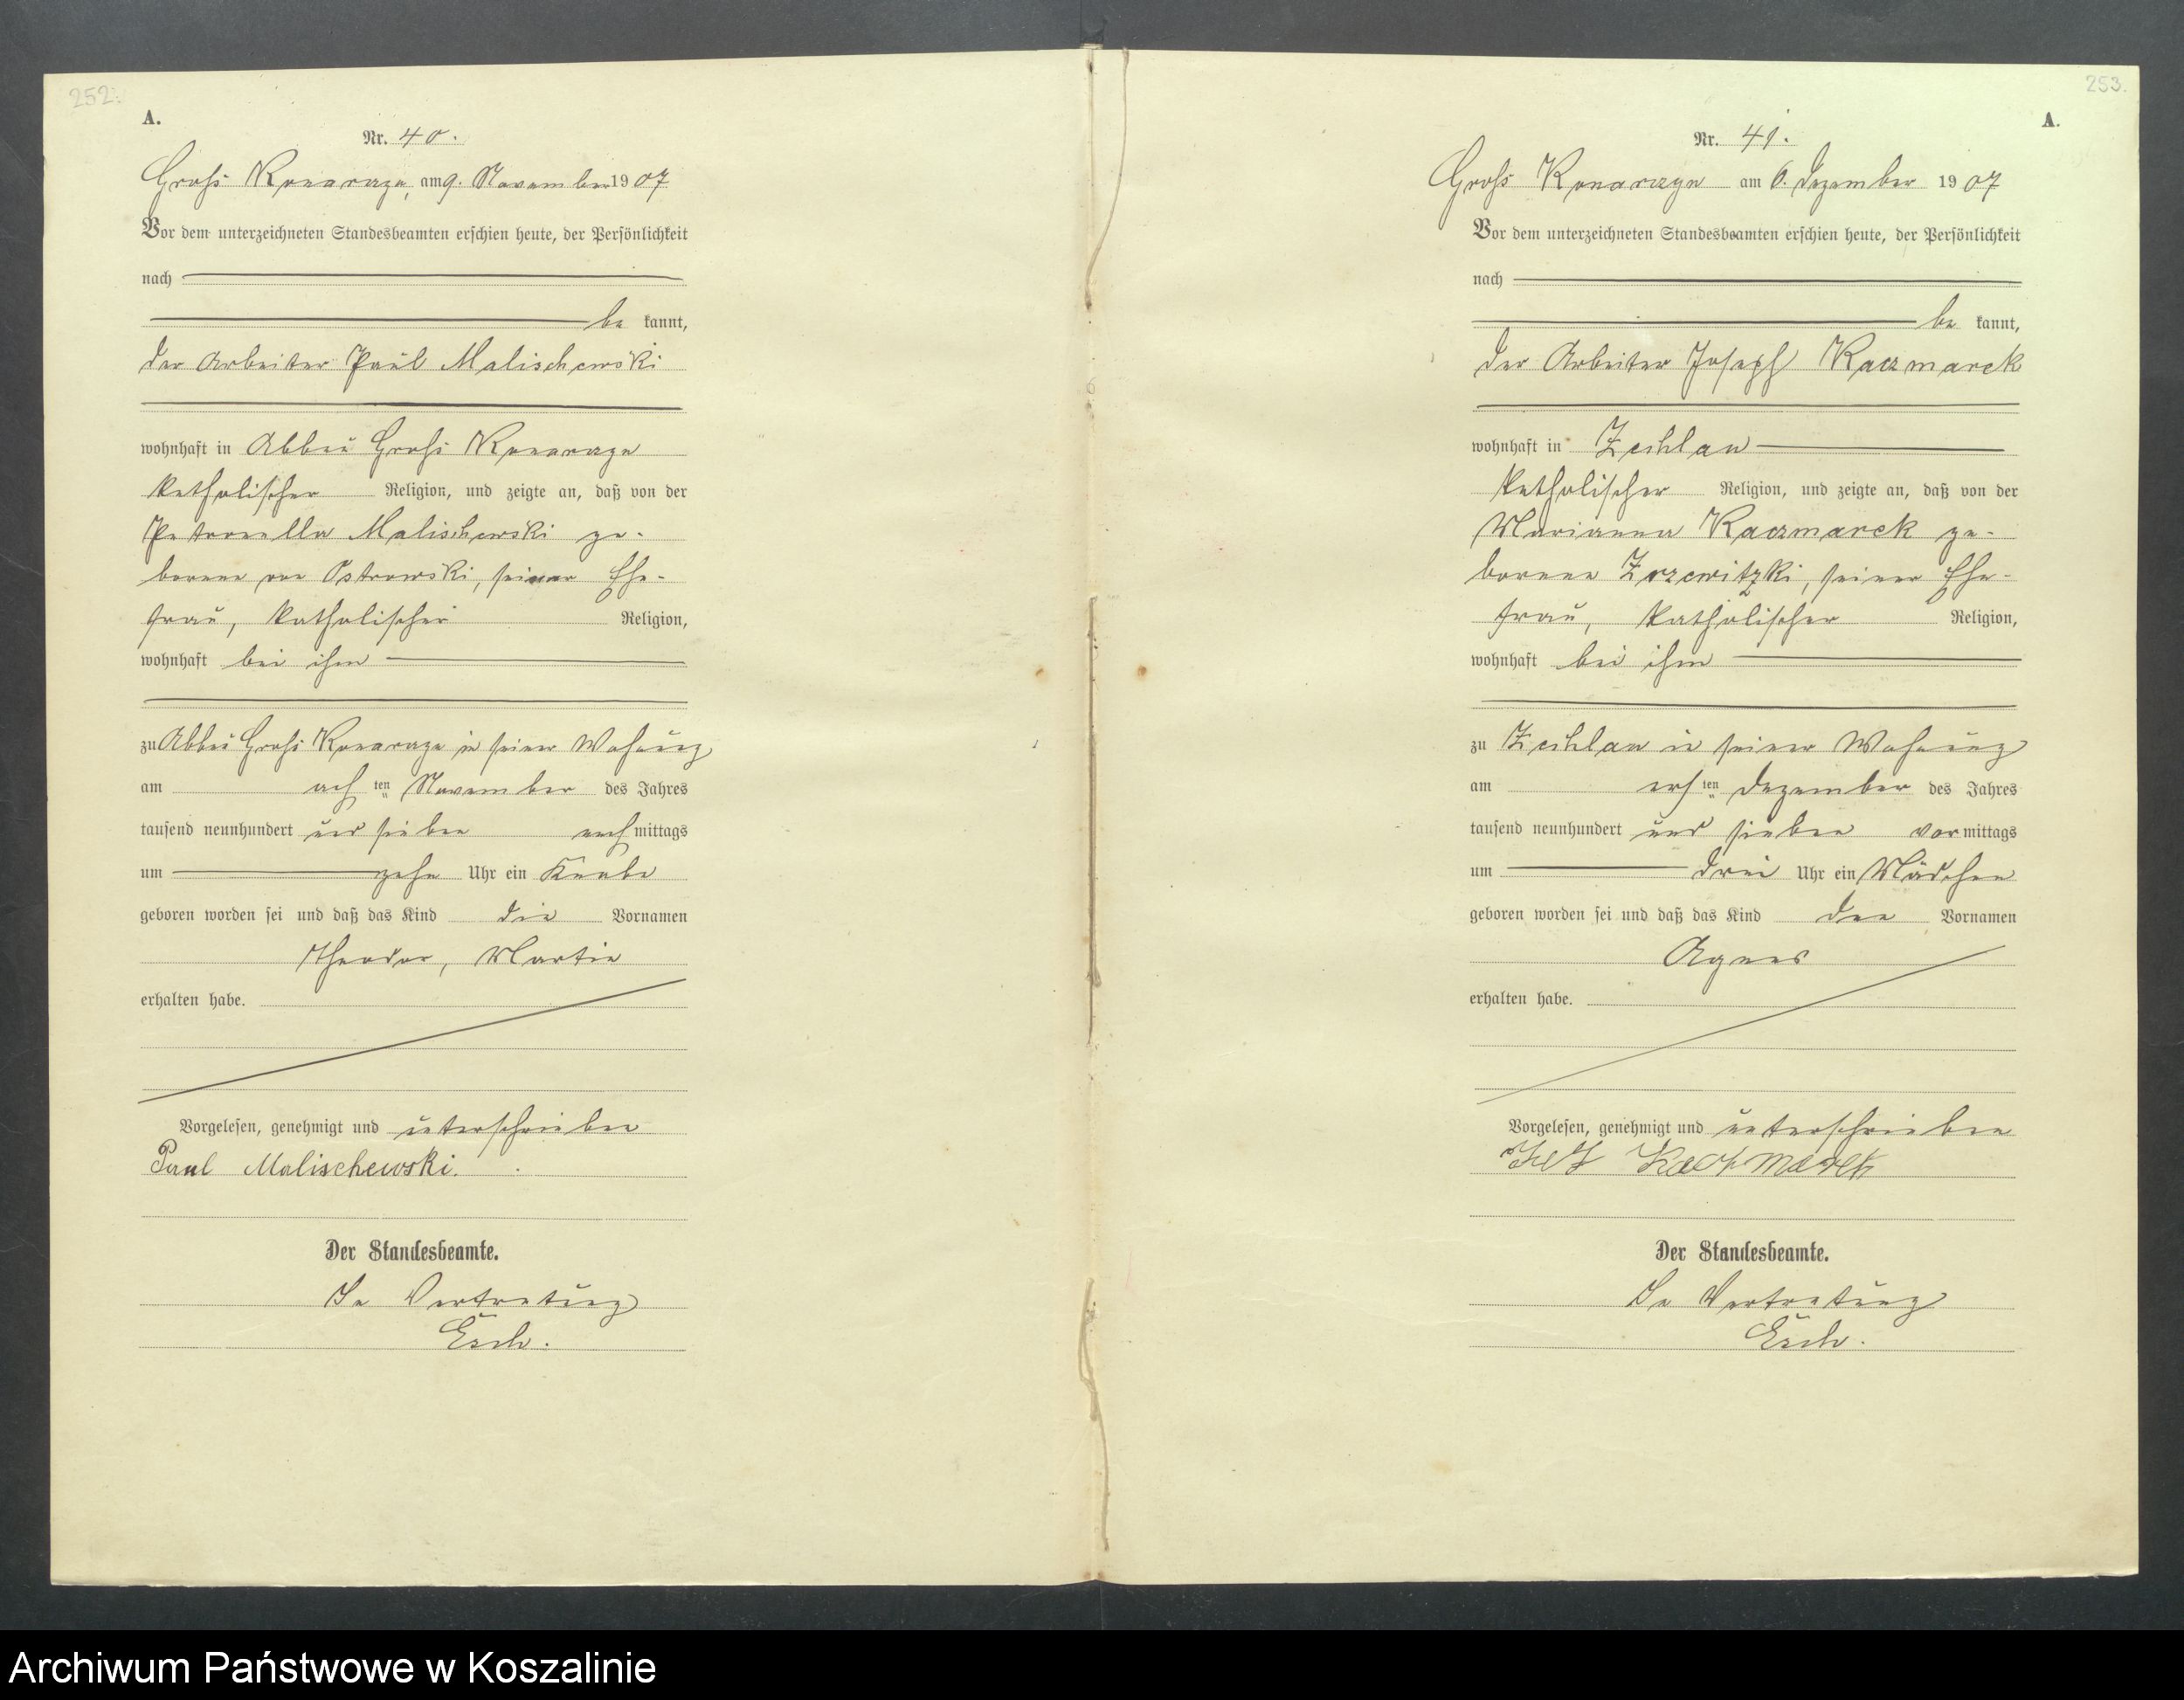 252.
A.
Nr. 40.
Groß Konarzyn, am 9. November 1907
Vor dem unterzeichneten Standesbeamten erschien heute, der Persönlichkeit
nach
be kannt,
der Arbeiter Paul Malischewski
wohnhaft in Abbau Groß Konarzyn
katholischer Religion, und zeigte an, daß von der
Petronella Malischewski ge-
borene von Ostrowski, seiner Ehe-
frau, katholischer Religion,
wohnhaft bei ihm
zu Abbau Groß Konarzyn in seiner Wohnung
am achten November des Jahres
tausend neunhundert und sieben nachmittags
um zehn Uhr ein Knabe
geboren worden sei und daß das Kind die Vornamen
Theodor, Martin
erhalten habe.
Vorgelesen, genehmigt und unterschrieben
Paul Malischewski.
Der Standesbeamte.
In Vertretung
Esch.
253.
A.
Nr. 41.
Groß Konarzyn am 6. Dezember 1907
Vor dem unterzeichneten Standesbeamten erschien heute, der Persönlichkeit
nach
be kannt,
der Arbeiter Joseph Kaczmarek
wohnhaft in Zechlau
katholischer Religion, und zeigte an, daß von der
Marianna Kaczmarek ge-
borene, seiner Ehe-
frau, katholischer Religion,
wohnhaft bei ihm
zu Zechlau in seiner Wohnung
am ersten Dezember des Jahres
tausend neunhundert und sieben vormittags
um drei Uhr ein Mädchen
geboren worden sei und daß das Kind den Vornamen
Agnes
erhalten habe.
Vorgelesen, genehmigt und unterschrieben
Kaczmarek
Der Standesbeamte.
In Vertretung
Esch.
Archiwum Państwowe w Koszalinie